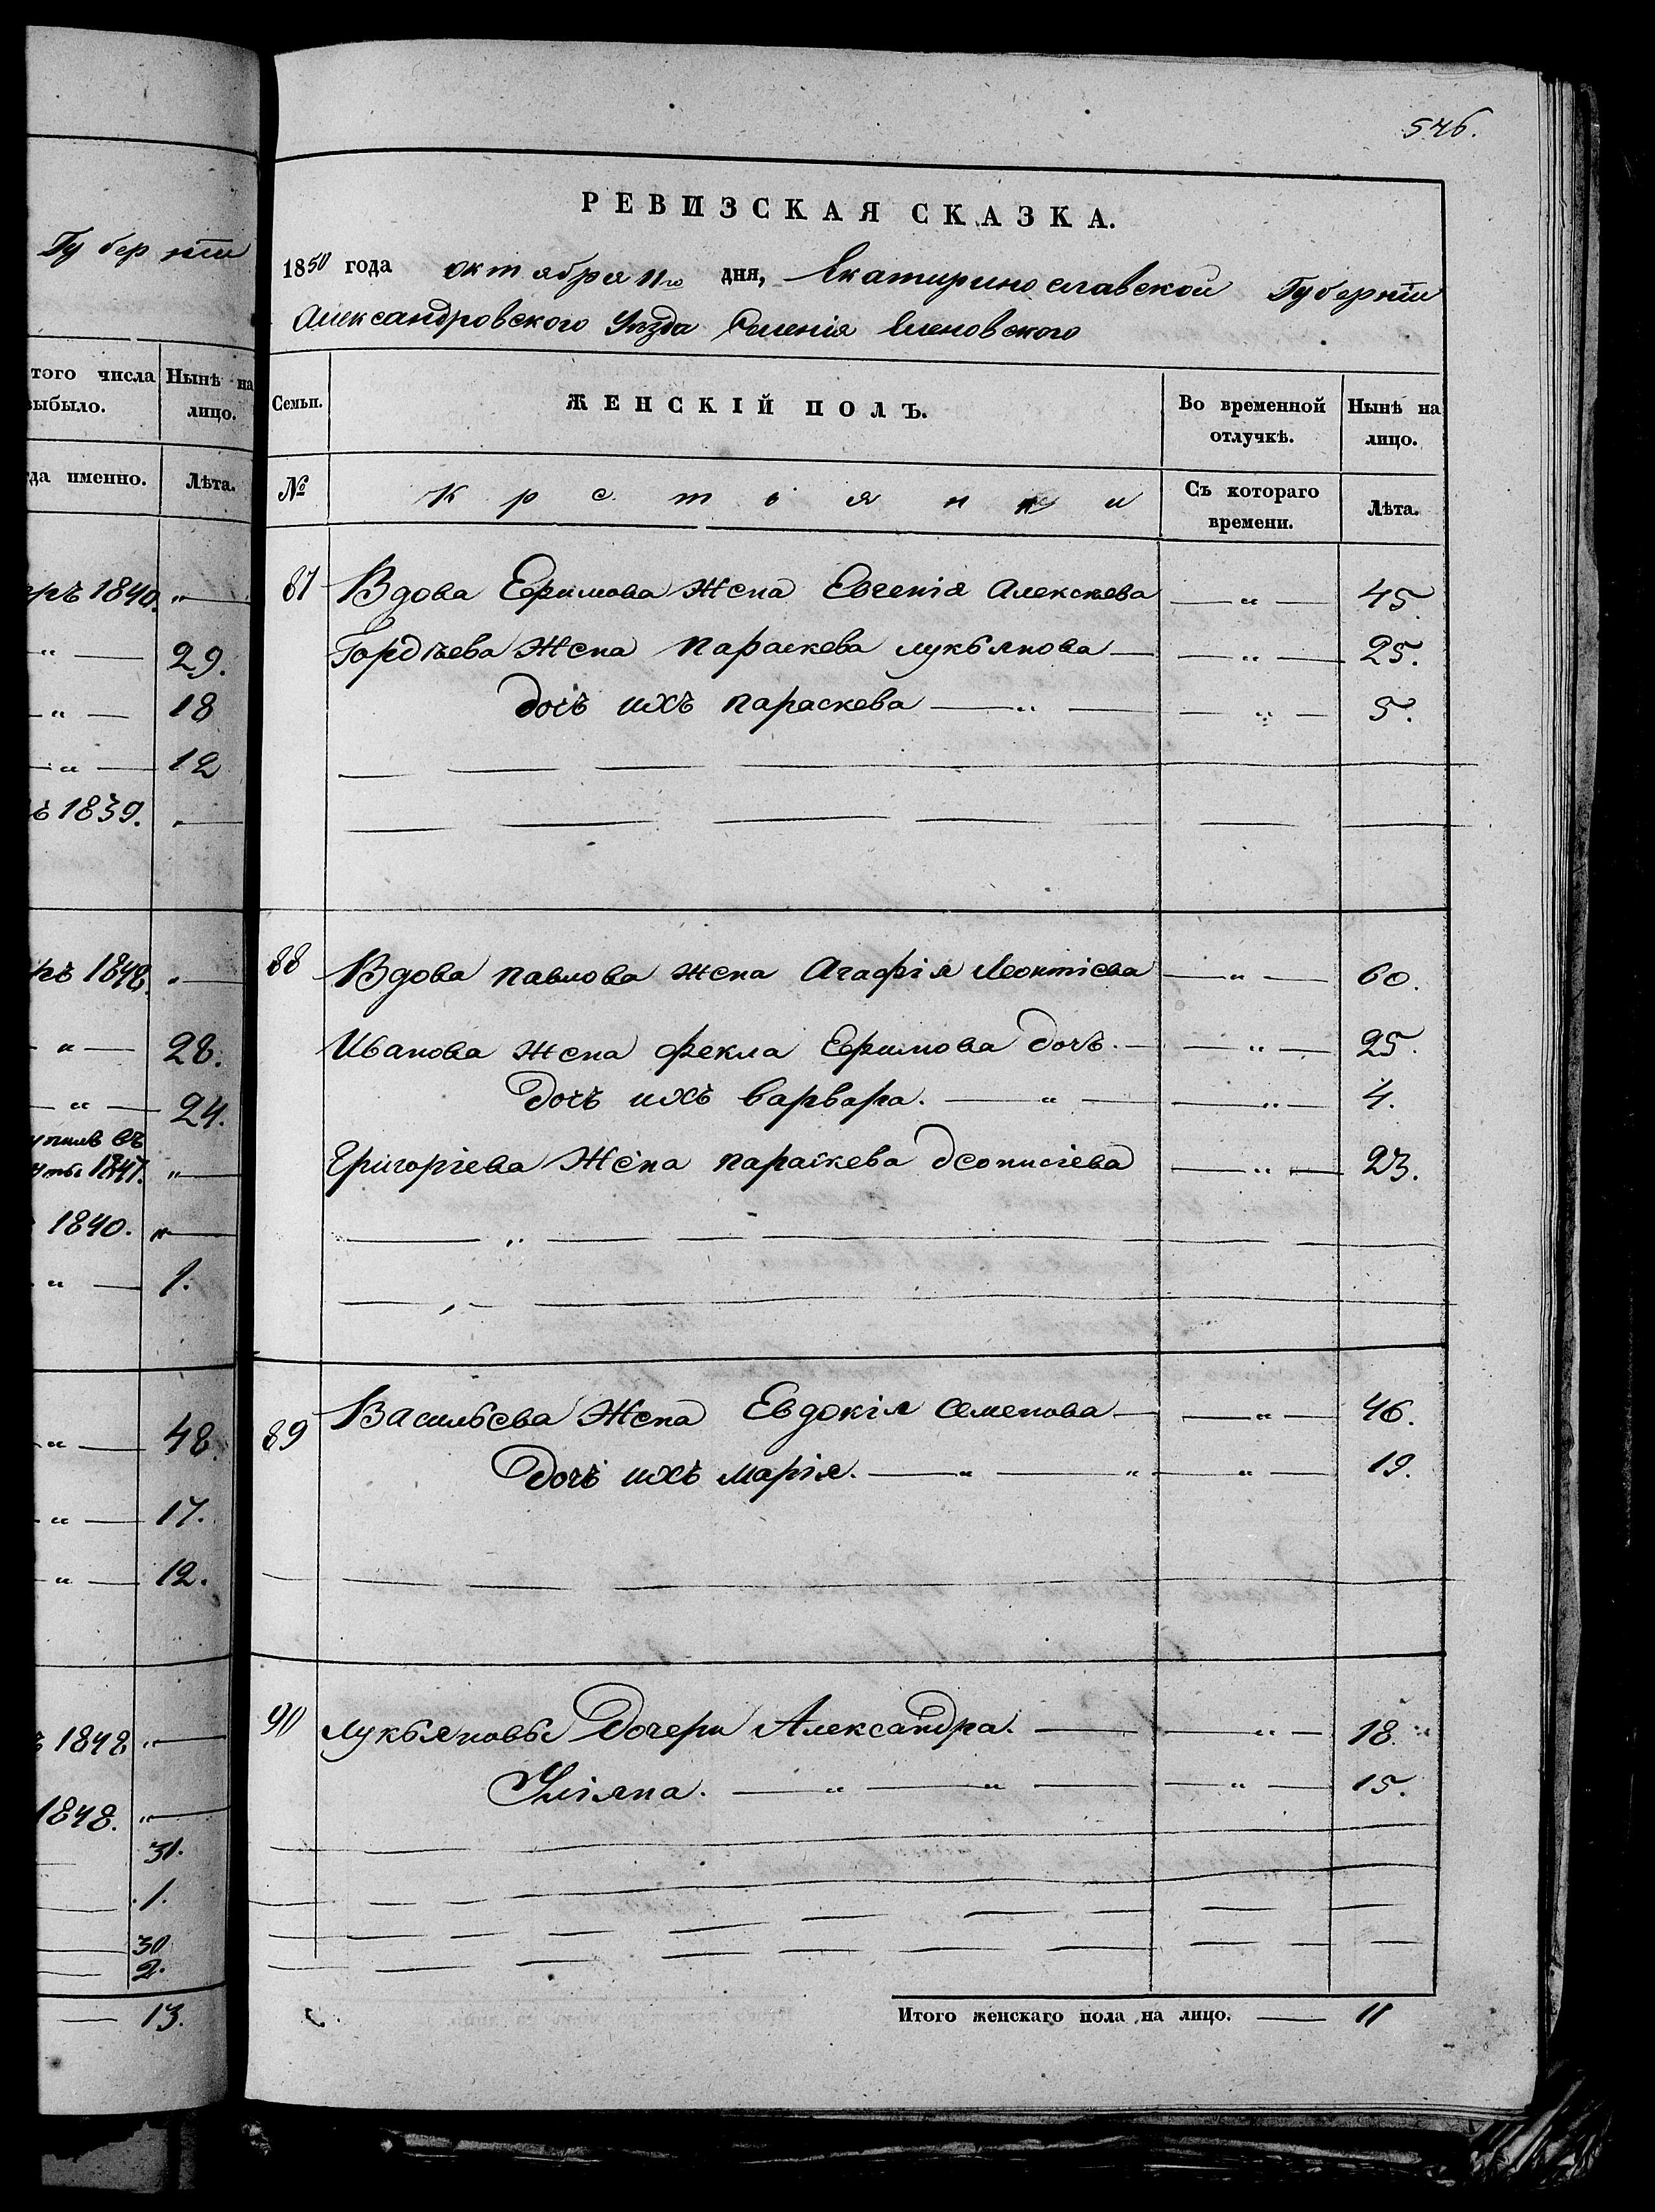 Губерніи
того числа
выбыло.
Нынѣ на
лицо.
да именно.
Лѣта.
1840. "
" 29.
" 18
" 12
1839. "
1848. "
" 28.
" 24.
1847. "
1840. "
" 1.
" 48.
" 17.
" 12.
1848 "
1848. "
31.
1.
30
2.
13.
546.
РЕВИЗСКАЯ СКАЗКА.
1850 года октября 11го дня, Екатиринославской Губерніи
Александровского Уѣзда Селенія Еленовского
Семьи. ЖЕНСКІЙ ПОЛЪ. Во временной отлучкѣ. Нынѣ на лицо.
№ Крстіянки Съ котораго времени. Лѣта.
87 Вдова Ефимова Жена Евгенія Алексѣева " 45.
Гордѣева Жена Параскева лукьянова " 25.
дочь ихъ параскева " " 5.
88 Вдова павлова жена Агафія Леонтіева " 60.
Иванова жена фекла Ефимова дочь. " 25.
Дочь ихъ варвара. " " 4.
Григоріева Жена параскева деонисіева " 23.
89 Васильева Жена Евдокія семенова " 46.
Дочь ихъ марія. " " " 19.
90 лукьяновы Дочери Александра. " 18.
Уліяна. " " " 15.
Итого женскаго пола на лицо. 11